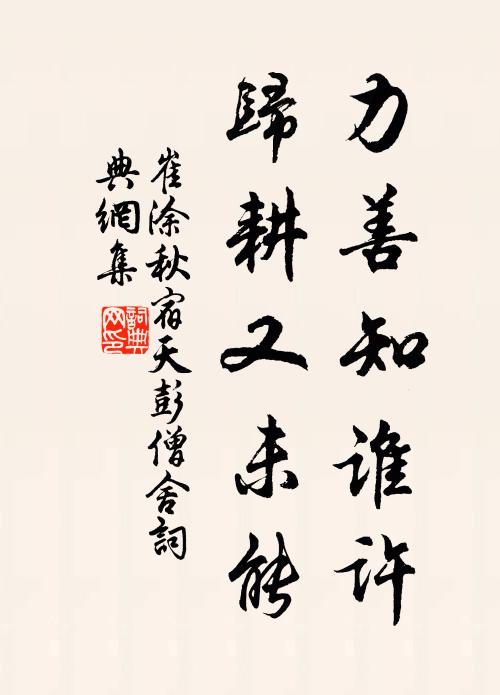 力善知誰許
歸耕又未能
崔涂秋宿天彭僧舍詞
典網集
詞典
网印